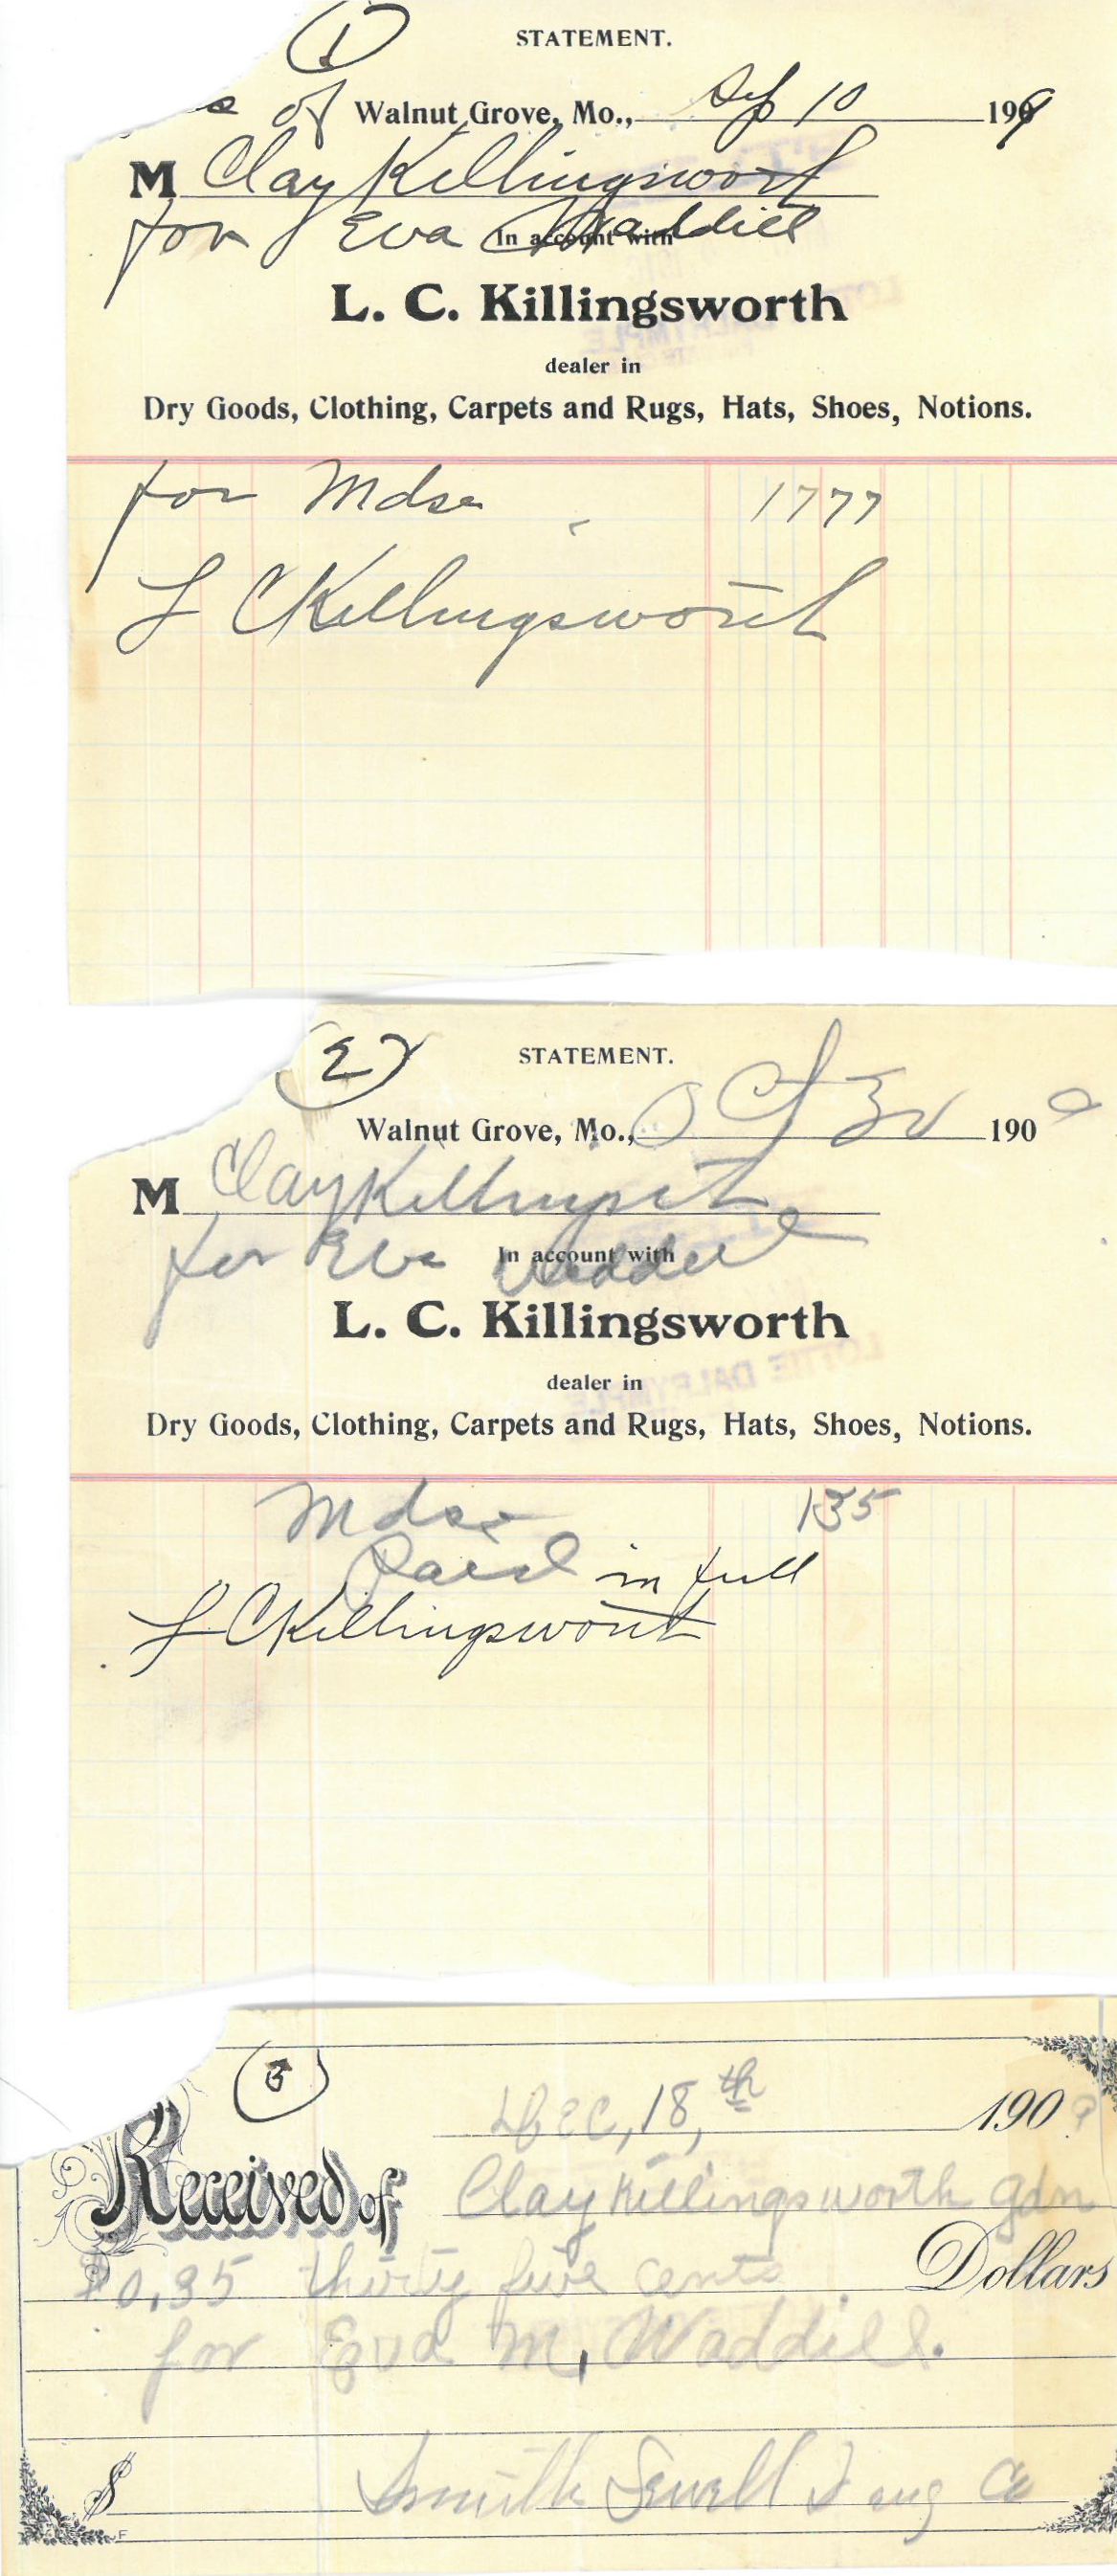 (1)
STATEMENT.
of Walnut Grove, Mo., Sep 10 1909
M Clay Killingsworth
for Eva Waddill
In account with
L. C. Killingsworth
dealer in
Dry Goods, Clothing, Carpets and Rugs, Hats, Shoes, Notions.
for Mdse 1777
L C Killingsworth
(2)
STATEMENT.
Walnut Grove, Mo., Oct 30 1909
M Clay Killingsworth
for Eva Waddill
In account with
L. C. Killingsworth
dealer in
Dry Goods, Clothing, Carpets and Rugs, Hats, Shoes, Notions.
Mdse 135
Paid in full
L C Killingsworth
(3)
Dec, 18, th 1909
Received of Clay Killingsworth gdn
$0.35 thirty five cents Dollars
for Eva M, Waddill.
$ Smith Sewell Co